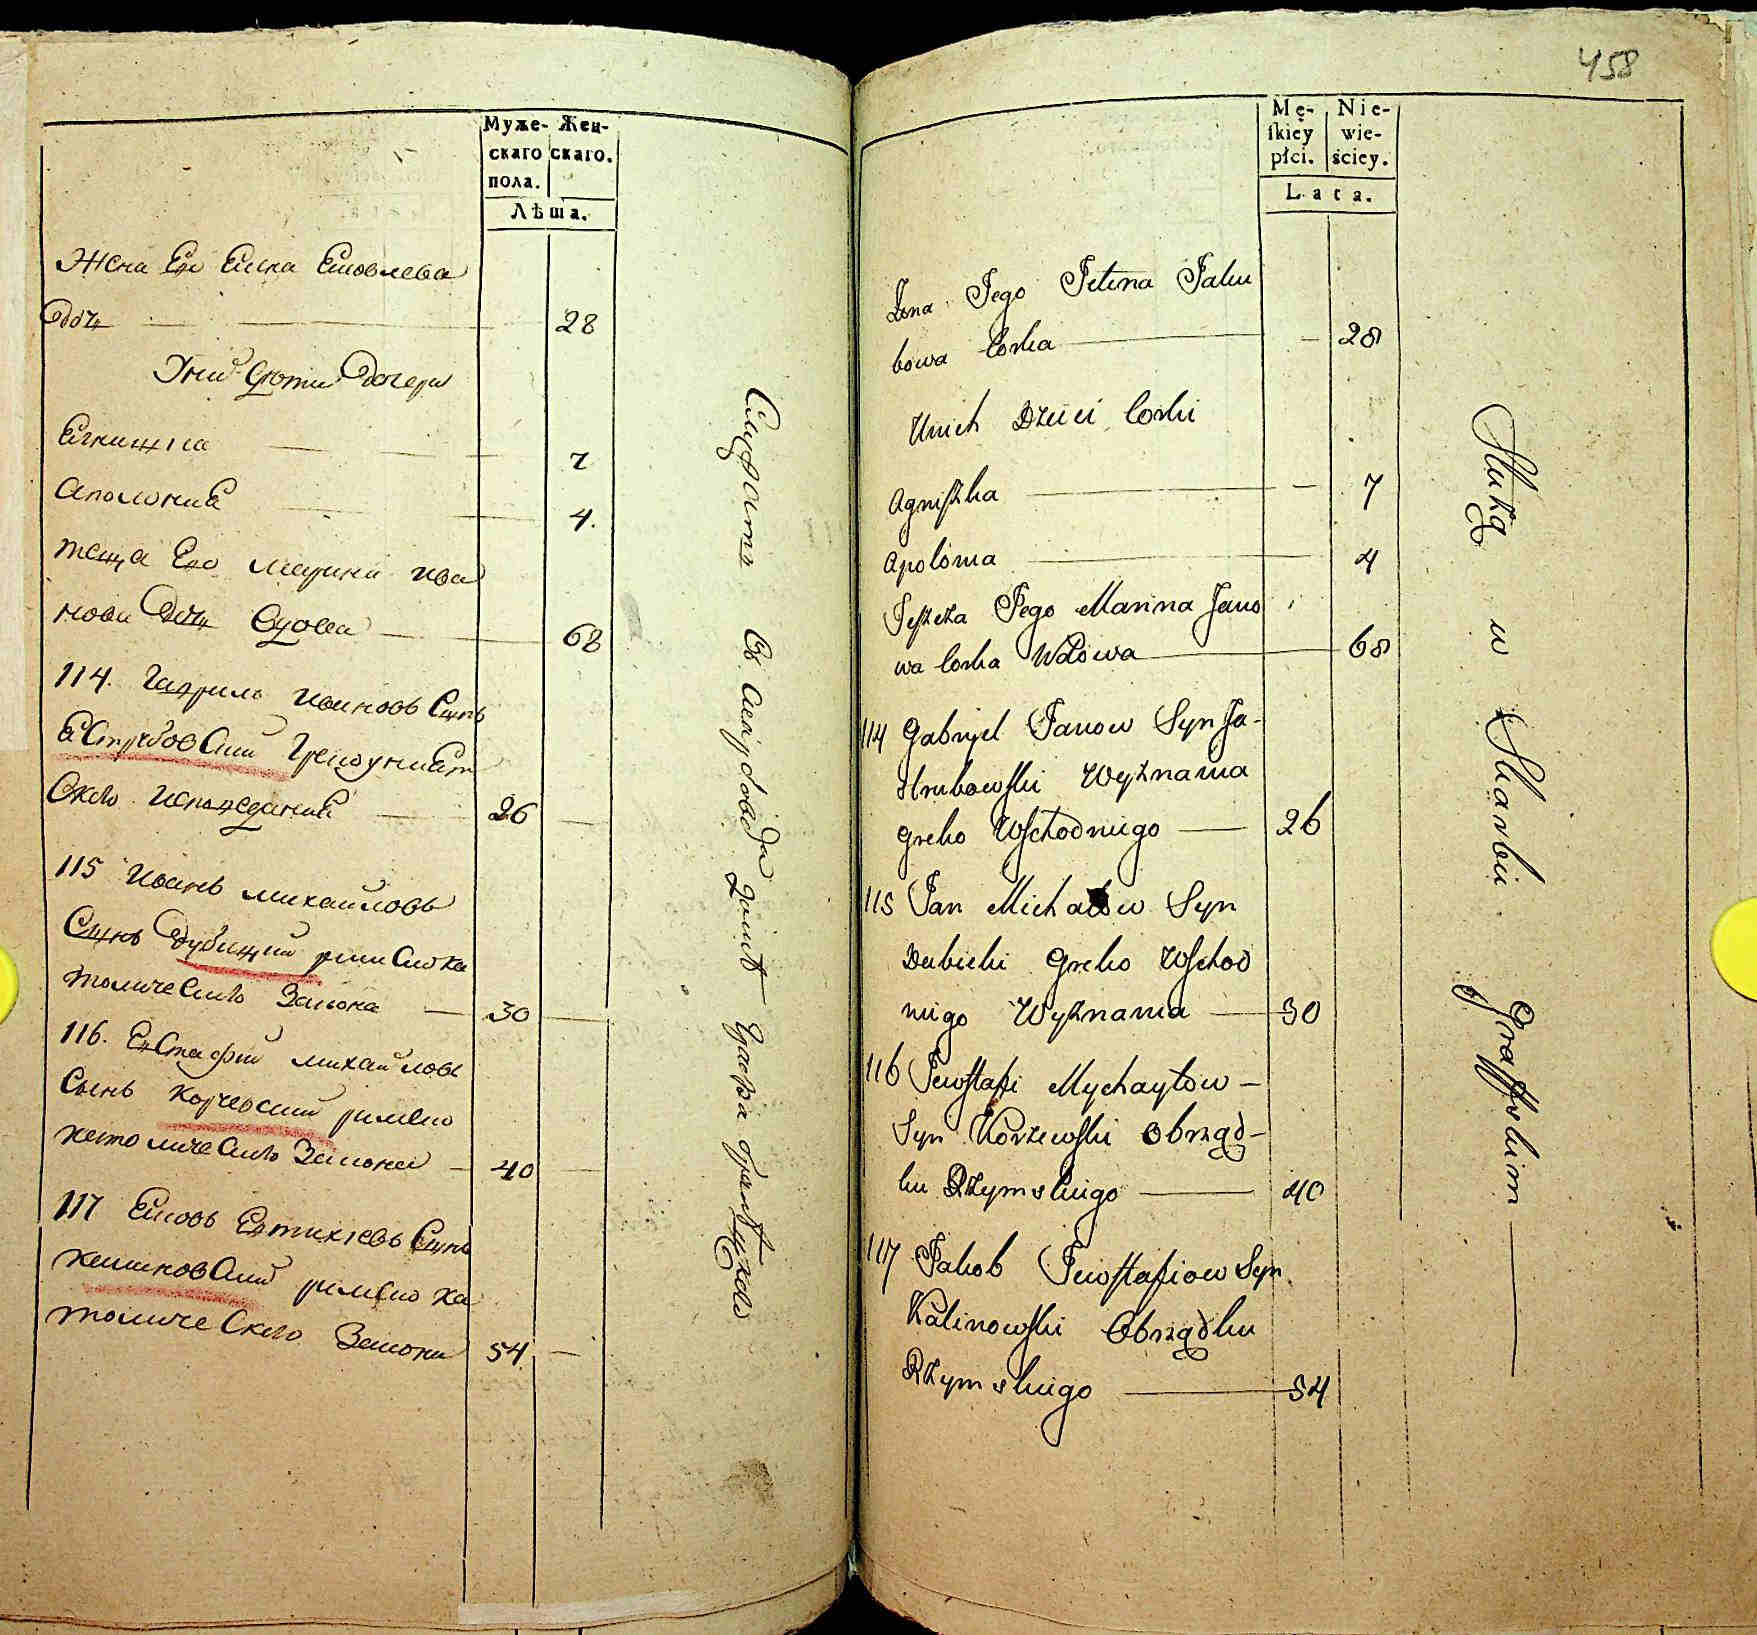 Муже- Жен-
скаго скаго.
пола.
Лѣта.
Жена Его Елена Яковлева
дочь 28
У них дѣти дочери
Агнищка 7
Аполония 4.
теща Его марина ива
нова дочь вдова 68
114. Гаврило ивановъ Сынъ
Яструбовский Грекоуниат
Скаго исповедания 26
115 иванъ михайловъ
Сынъ дубицкий римско ка
толическаго Закона 30
116. Евстафий михайловъ
Сынъ корчевский римско
католическаго Закона 40
117 Яковъ Евтихіевъ Сынъ
калиновский римско ка
толическаго Закона 54
Служатъ Въ
Графа
458
Mę- Nie-
skiey wie-
płci. ściey.
Lata.
Żona Jego Jelena Jaku
bowa Corka 28
Unich Dzieci Corki
Agniszka 7
Apolonia 4
Teszcza Jego Marina Jano
wa Corka Wdowa 68
114 Gabryel Janow Syn Ja-
strubowski Wyznania
Greko Wschodniego 26
115 Jan Michałow Syn
Dubicki Greko Wschod
niego Wyznania 30
116 Jewstafi Mychayłow
Syn Korzewski Obrząd-
ku Rzymskiego 40
117 Jakob Jewstafiow Syn
Kalinowski Obrządku
Rzymskiego 54
Służą w Skarbie Graffskim